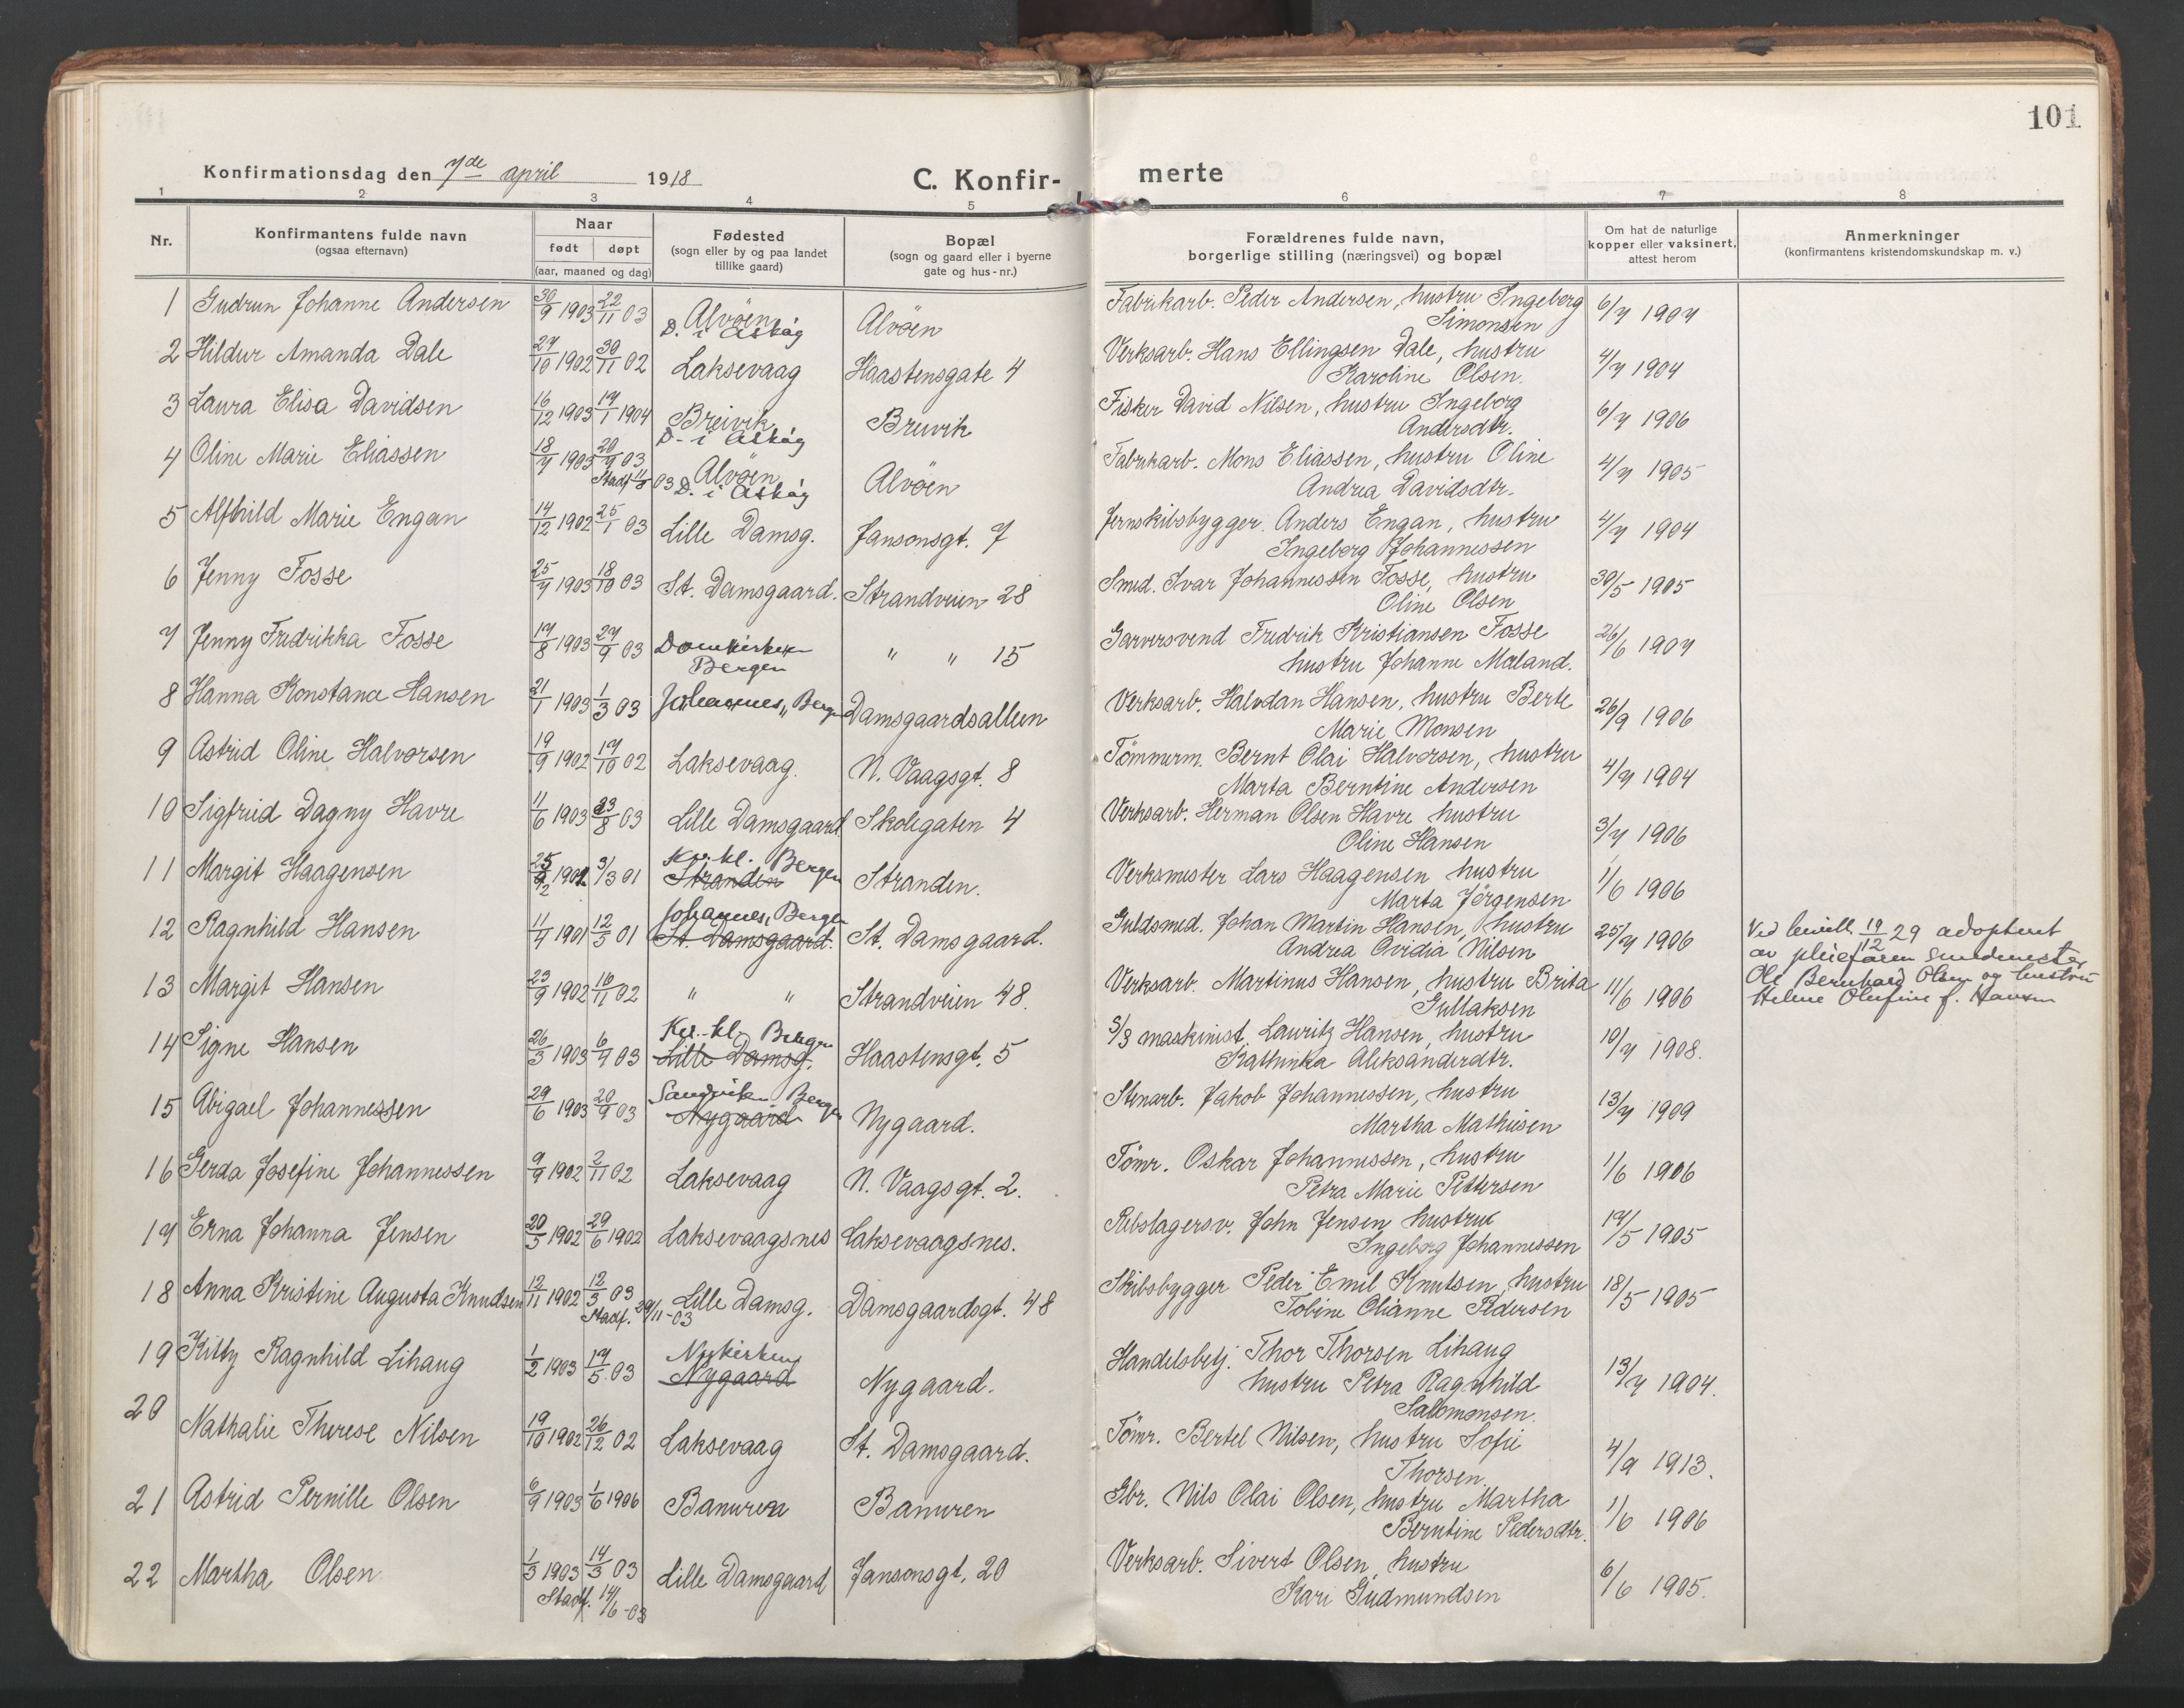 101
Konfirmationsdag den 7de april 1918
C. Konfir-
merte
1 2 3 4 5 6 7 8
Nr.
Konfirmantens fulde navn
(ogsaa efternavn)
Naar
født døpt
(aar, maaned og dag)
Fødested
(sogn eller by og paa landet
tillike gaard)
Bopæl
(sogn og gaard eller i byerne
gate og hus-nr.)
Forældrenes fulde navn,
borgerlige stilling (næringsvei) og bopæl
Om hat de naturlige
kopper eller vaksinert,
attest herom
Anmerkninger
(konfirmantens kristendomskundskap m. v.)
1 Gudrun Johanne Andersen 30/9 1903 22/11 03 Alvöen Alvöen Fabrikarb. Peder Andersen, hustru Ingeborg 6/7 1907
D. i Askøy Simonsen
2 Hildur Amanda Dale 27/10 1902 30/11 02 Laksevaag Haastensgate 4 Verksarb. Hans Ellingsen Dale, hustru 4/7 1904
Karoline Olsen.
3 Laura Elisa Davidsen 16/12 1903 17/1 1904 Breivik Breivik Fisker David Nilsen, hustru Ingeborg 6/7 1906
D. i Askøy Andersdtr.
4 Oline Marie Eliassen 18/7 1903 20/9 03 Alvöen Alvöen Fabrikarb. Mons Eliassen, hustru Oline 4/7 1905
Stadf. 03 D. i Askøy Andrea Davidsdtr.
5 Alfhild Marie Engan 14/12 1902 25/1 03 Lille Damsg. Jansonsgt. 7 Jernskibsbygger. Anders Engan, hustru 4/7 1904
Ingeborg Johannessen
6 Jenny Fosse 25/7 1903 18/10 03 St. Damsgaard. Strandveien 28 Smed. Ivar Johannessen Fosse, hustru 30/5 1905
Oline Olsen
7 Jenny Fredrikka Fosse 17/8 1903 27/9 03 Domkirken " " 15 Garversvend Fredrik Kristiansen Fosse 26/6 1907
Bergen hustru Johanne Mæland.
8 Hanna Konstance Hansen 21/1 1903 1/3 03 Johannes, Bergen Damsgaardsalleen Verksarb. Halvdan Hansen, hustru Berte 26/9 1906
Marie Monsen
9 Astrid Oline Halvorsen 19/9 1902 17/10 02 Laksevaag. N. Vaagsgt. 8 Tömmerm. Bernt Olai Halvorsen, hustru 4/7 1904
Marta Berntine Andersen
10 Sigfried Dagny Havre 11/6 1903 23/8 03 Lille Damsgaard Skolegaten 4 Verksarb. Herman Olsen Havre hustru 3/7 1906
Oline Hansen
Kor.-kl. Bergen
11 Margit Haagensen 3/3 01 Stranden Stranden. Verksmester Lars Haagensen hustru 1/6 1906
Marta Jörgensen
Johannes, Bergen
12 Ragnhild Hansen 11/4 1901 12/5 01 St. Damsgaard. St. Damsgaard. Guldsmed. Johan Martin Hansen, hustru 25/7 1906
Andrea Ovidia Nilsen
Ved bevill. 19/12 29 adoptert
av pleiefaren smedmester
Ole Bernhard Olsen og hustru
Helene Olufine f. Hansen
13 Margit Hansen 23/9 1902 16/11 02 " " Strandveien 48. Verksarb. Martinus Hansen, hustru Brita 11/6 1906
Gullaksen
Kor.-kl. Bergen
14 Signe Hansen 26/3 1903 6/9 03 Lille Damsg. Haastensgt. 5 S/S maskinist. Lauritz Hansen, hustru 10/7 1908.
Kathinka Aleksanderdtr.
Sandviken Bergen
15 Abigael Johannessen 29/6 1903 20/9 03 Nygaard Nygaard. Stenarb. Jakob Johannessen, hustru 13/7 1909
Martha Mathiesen
16 Gerda Josefine Johannessen 9/9 1902 2/11 02 Laksevaag N. Vaagsgt. 2. Tömr. Oskar Johannessen, hustru 1/6 1906
Petra Marie Pettersen
17 Erna Johanna Jensen 20/5 1902 29/6 1902 Laksevaagsnes Laksevaagsnes. Rebslagersv. John Jensen hustru 17/5 1905
Ingeborg Johannessen
18 Anna Kristine Augusta Knudsen 12/11 1902 12/3 03 Lille Damsg. Damsgaardsgt. 48 Skibsbygger Peder Emil Knutsen, hustru 18/5 1905
Stadf. 29/11-03 Tobine Olianne Pedersen
Nykirken
19 Kitty Ragnhild Lihaug 1/2 1903 17/5 03 Nygaard Nygaard. Handelsbetj. Thor Thorsen Lihaug 13/7 1904.
hustru Petra Ragnhild
Salomonsen.
20 Nathalie Therese Nilsen 19/10 1902 26/12 02 Laksevaag St. Damsgaard. Tömr. Bertel Nilsen, hustru Sofie 4/9 1913.
Thorsen.
21 Astrid Pernille Olsen 6/9 1903 1/6 1906 Banuren Banuren Gbr. Nils Olai Olsen, hustru Martha 1/6 1906
Berntine Pedersdtr.
22 Martha Olsen 1/3 1903 14/3 03 Lille Damsgaard Jansonsgt. 20 Verksarb. Sivert Olsen, hustru 6/6 1905.
Stadf. 14/6-03 Kari Gudmundsen